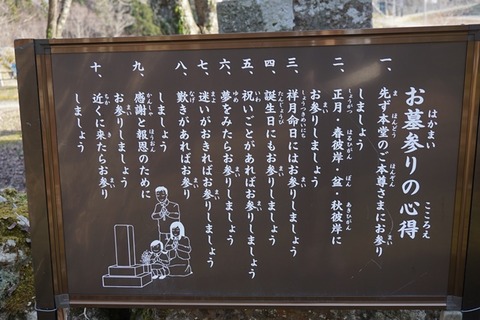 お墓参りの心得
一、先ず本堂のご本尊さまにお参り
しましょう
二、正月・春彼岸・盆 秋彼岸に
お参りしましょう
三、祥月命日にはお参りしましょう
四、誕生日にもお参りしましょう
五、祝いごとがあればお参りしましょう
六、夢をみたらお参りしましょう
七、迷いがおきればお参りしましょう
八、歎きがあればお参り
しましょう
九、感謝と報恩のために
お参りしましょう
十、近くに来たらお参り
しましょう